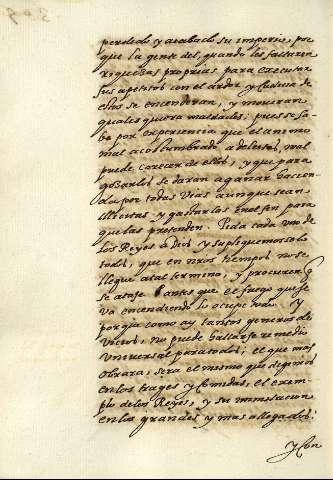 perdido y acabado su imperio, por
que la gente del, quando les faltaren
riquezas proprias para executar
sus apetitos con el ardor y
ellos se encenderan, y moviran
quales quiera maldades: pues se sa-
be por experiencia que el animo
mal acostumbrado a deleites, mal
puede carecer de ellos, y que para
gozarlos se daran a ganar hacien-
da por todas vias aunque sean
illicitas y gastarlos en el fin para
que las pretenden. Pida cada uno de
los Reyes a Dios y supliquemosolo
todos, que en nros tiempos no se
llegue a tal termino, y procuren q̃
se ataje antes que el fuego que se
va encendiendo lo ocupe todo. Y
porq̃ a como ay tantos generos de
vicios, no puede hallarse remedio
universal para todos; el que mas
obrara, sera el mismo que
en los trages y comidas, el exem-
plo de los Reyes, y su immitacion
en los grandes y mas allegados:
y con